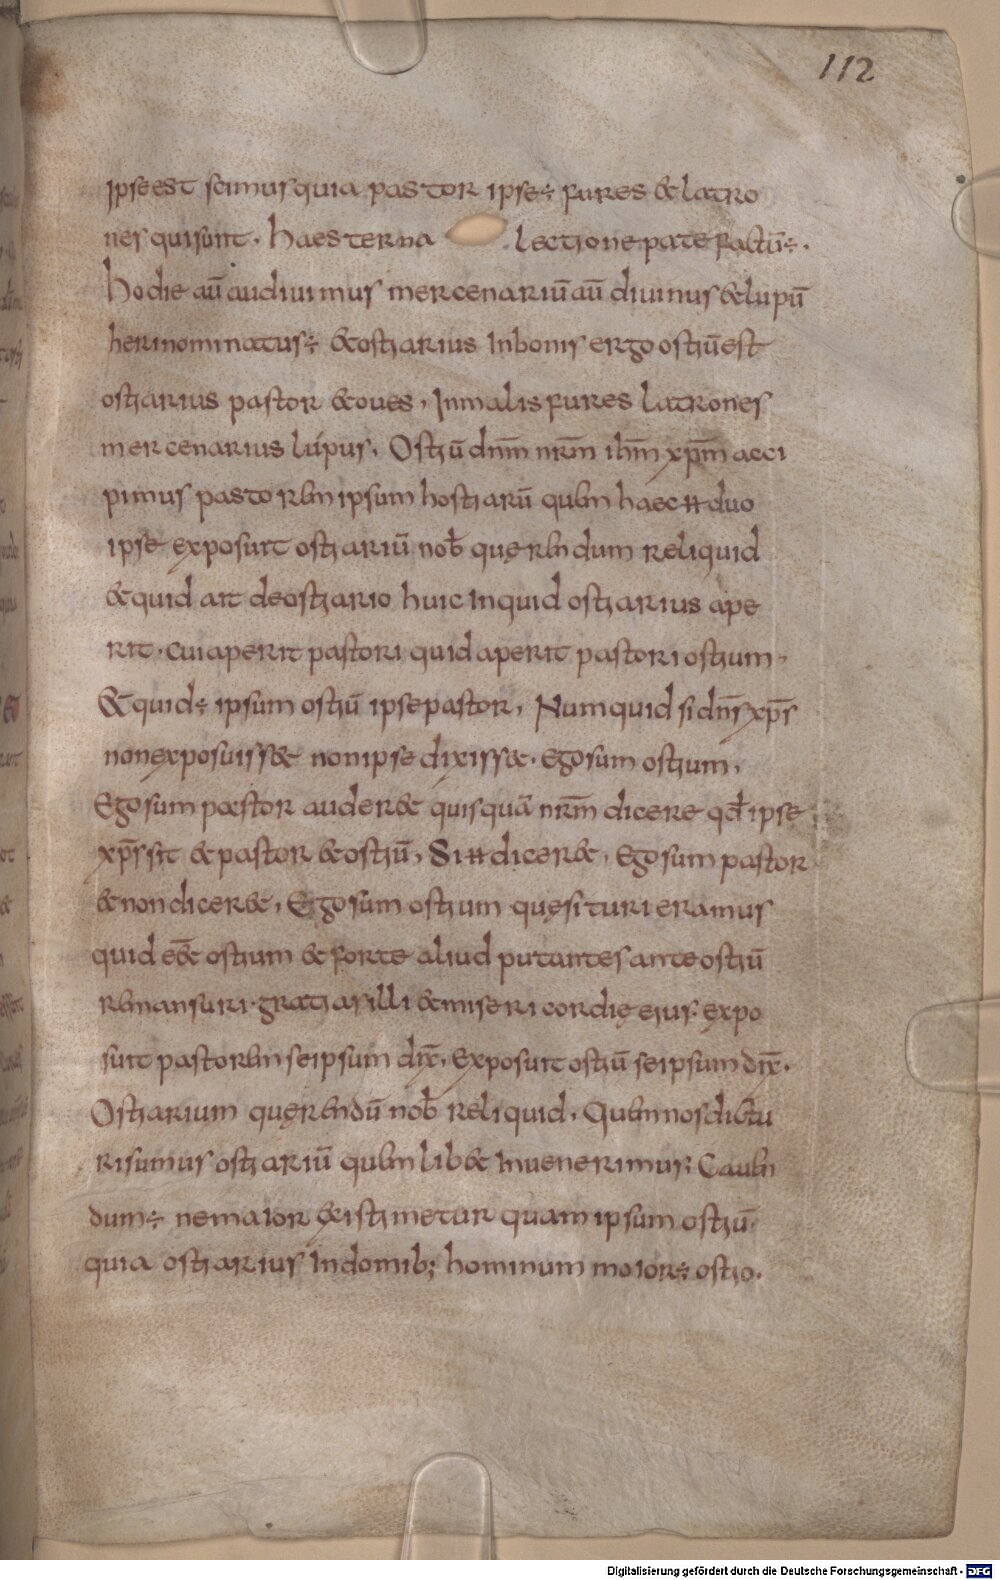 112
ipse est scimus quia pastor ipse ÷ fures & latro
nes qui sunt · haesterna lectione patefactū ÷ ·
hodie aū audiuimus mercenariū aū diuimus & lupū
heri nominatus ÷ & ostiarius In bonis ergo ostiū est
ostiarius pastor & oues, In malis fures latrones
mercenarius lúpus. Ostiū dnm̄ nrm̄ ihm̄ xpm̄ acci
pimus pastorem ipsum hostiarū quem haec ⧺ duo
ipse exposuit ostiariū nob̄ quęrendum reliquid
& quid ait de ostiario huic Inquid ostiarius ape
rit · cui aperit pastori quid aperit pastori ostium ·
& quid ÷ ipsum ostiū ipse pastor, Numquid si dns̄ xps̄
non exposuiss& non ipse dixiss& · Ego sum ostium,
Ego sum pæstor auder& quisquā nrm̄ dicere qd̄ ipse
xps̄ sit & pastor & ostiū, Si ⧺ dicer&, Ego sum pastor
& non dicer&, Ego sum ostium quęsituri eramus
quid eē& ostium & forte aliud putantes ante ostiū
remansuri · gratia silli & misericordię eius · expo
suit pastorem seipsum dix̄, exposuit ostiū seipsum dix̄.
Ostiarium quęrendū nob̄ reliquid, Quem nos dictu
risumus ostiariū quem lib& Inuenerimus; Cauen
dum ÷ ne maior existimetur quam ipsum ostiū
quia ostiarius In domib; hominum moior ÷ ostio.
Digitalisierung gefördert durch die Deutsche Forschungsgemeinschaft - DFG